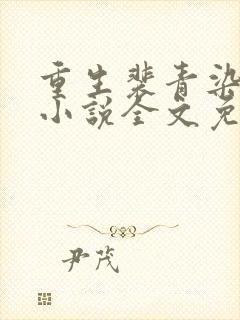 重生裴青染
小说全文免
尹茂